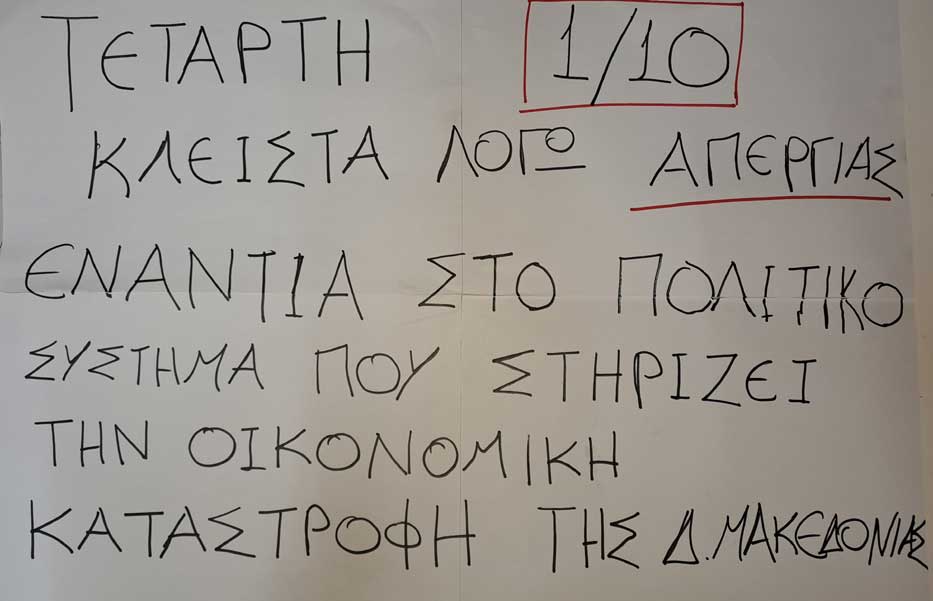 ΤΕΤΑΡΤΗ 1/10
ΚΛΕΙΣΤΑ ΛΟΓΩ ΑΠΕΡΓΙΑΣ
ΕΝΑΝΤΙΑ ΣΤΟ ΠΟΛΙΤΙΚΟ
ΣΥΣΤΗΜΑ ΠΟΥ ΣΤΗΡΙΖΕΙ
ΤΗΝ ΟΙΚΟΝΟΜΙΚΗ
ΚΑΤΑΣΤΡΟΦΗ ΤΗΣ Δ. ΜΑΚΕΔΟΝΙΑΣ